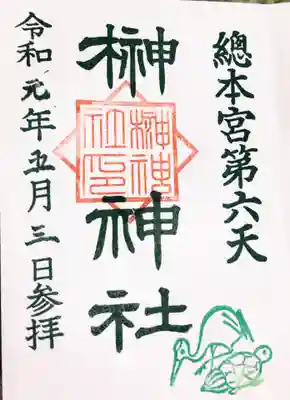 總本宮第六天
榊神社
榊神
社印
令和元年五月三日参拝